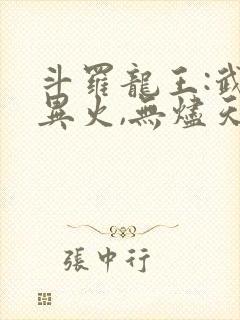 斗羅龍王:武
異火,無燼天
張中行